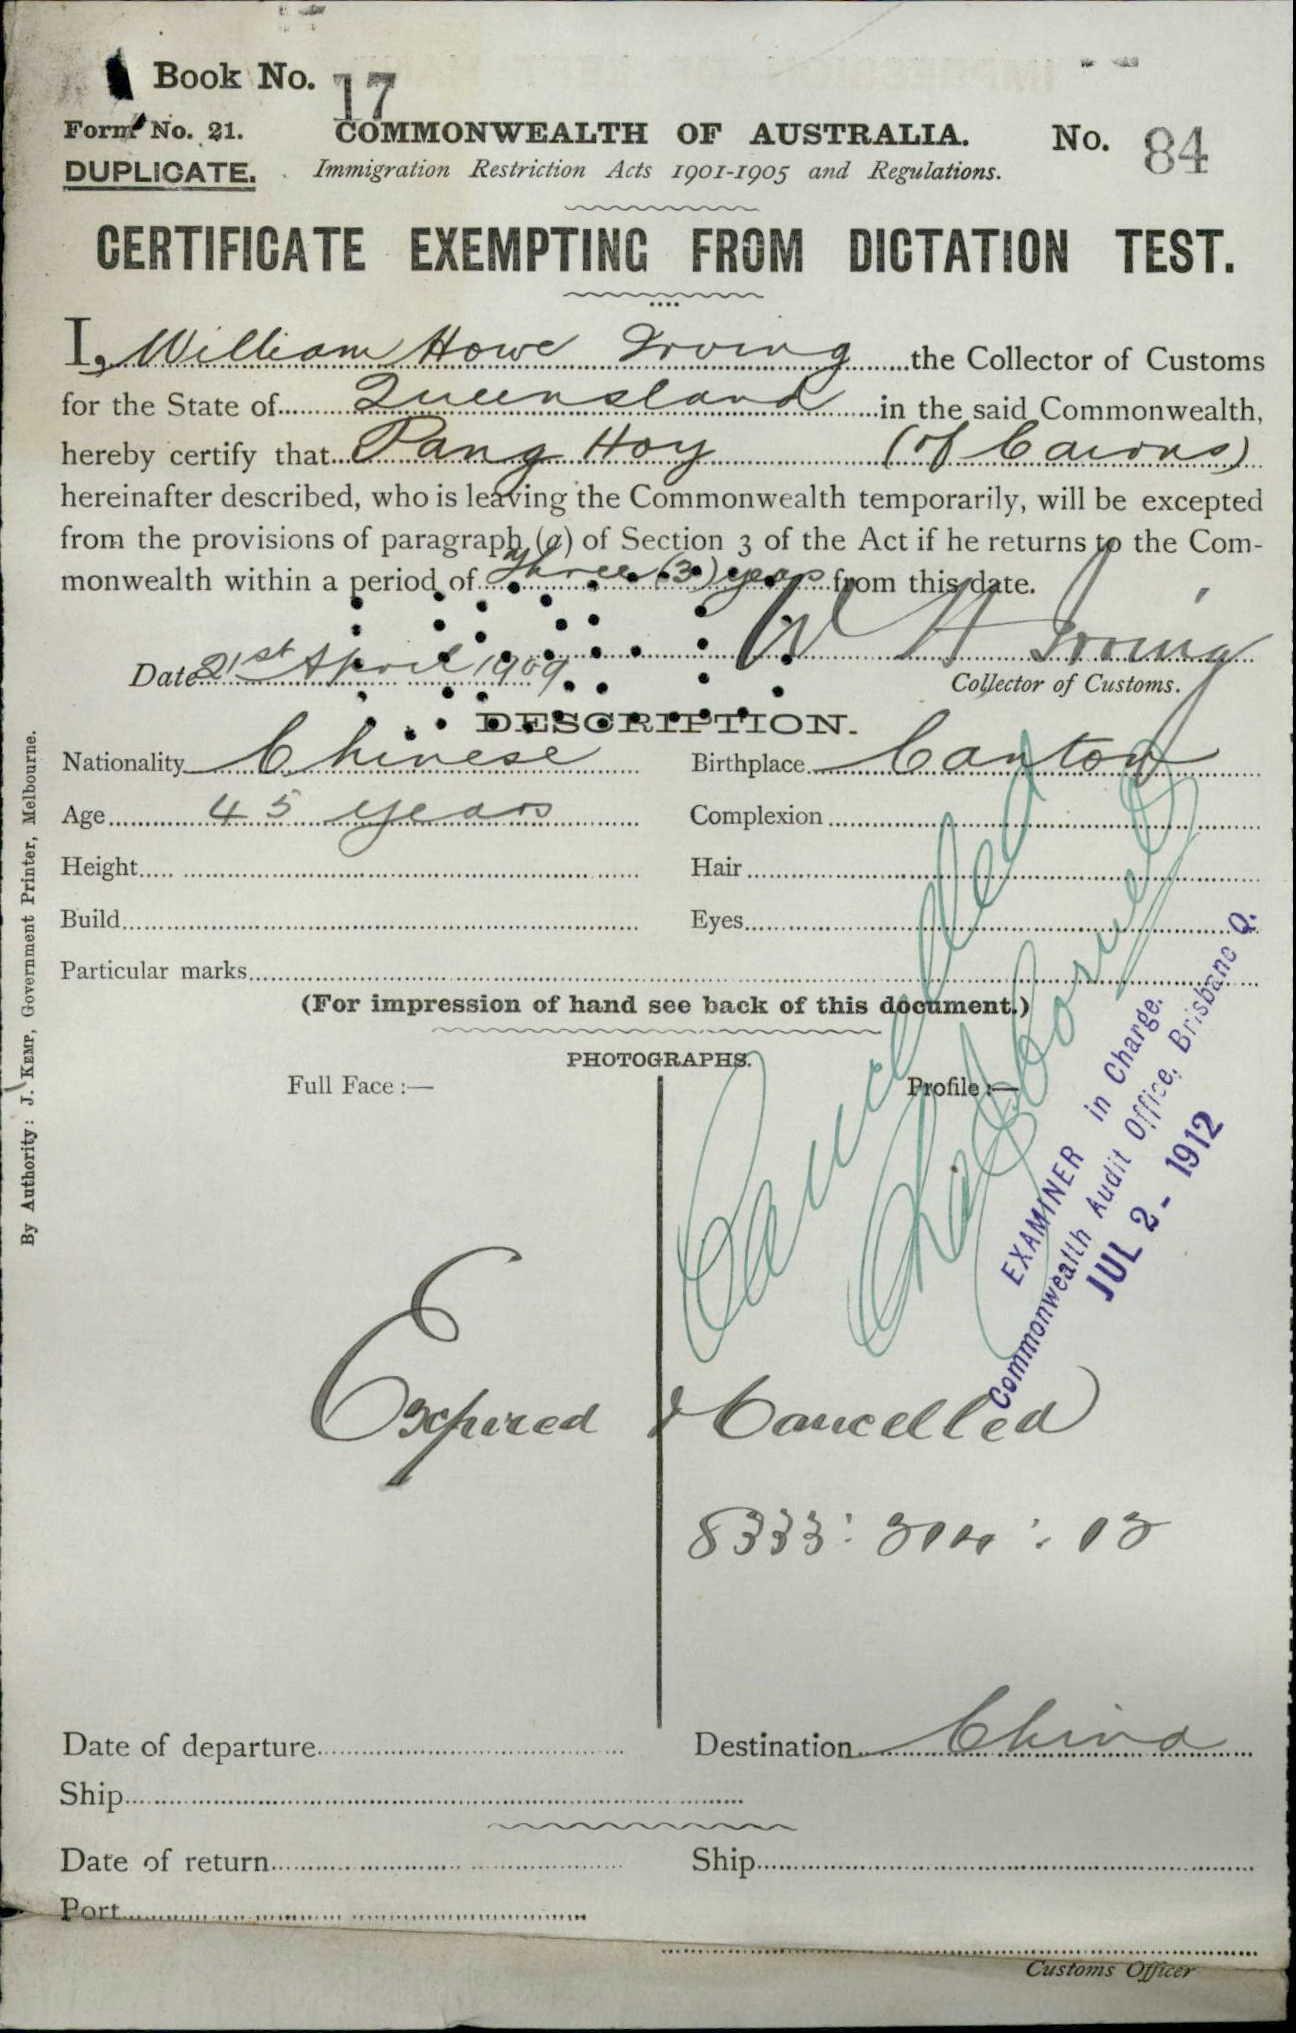 Book No. 17
Form No. 21.
COMMONWEALTH OF AUSTRALIA.
No. 84
DUPLICATE.
Immigration Restriction Acts 1901-1905 and Regulations.
CERTIFICATE EXEMPTING FROM DICTATION TEST.
I, William Howe Irving the Collector of Customs
for the State of Queensland in the said Commonwealth,
hereby certify that Pang Hoy (of Cairns)
hereinafter described, who is leaving the Commonwealth temporarily, will be excepted
from the provisions of paragraph (a) of Section 3 of the Act if he returns to the Com-
monwealth within a period of Three (3) years from this date.
W H Irving
Date 21st April 1909
Collector of Customs.
DESCRIPTION.
Nationality Chinese
Birthplace Canton
Age 45 years
Complexion
Height
Hair
Build
Eyes
Particular marks
(For impression of hand see back of this document.)
PHOTOGRAPHS.
Full Face :—
Profile :—
Cancelled
EXAMINER in Charge.
Commonwealth Audit Office, Brisbane Q.
JUL 2 - 1912
Expired & Cancelled
Date of departure
Destination China
Ship
Date of return
Ship
Port
Customs Officer
By Authority: J. KEMP, Government Printer, Melbourne.